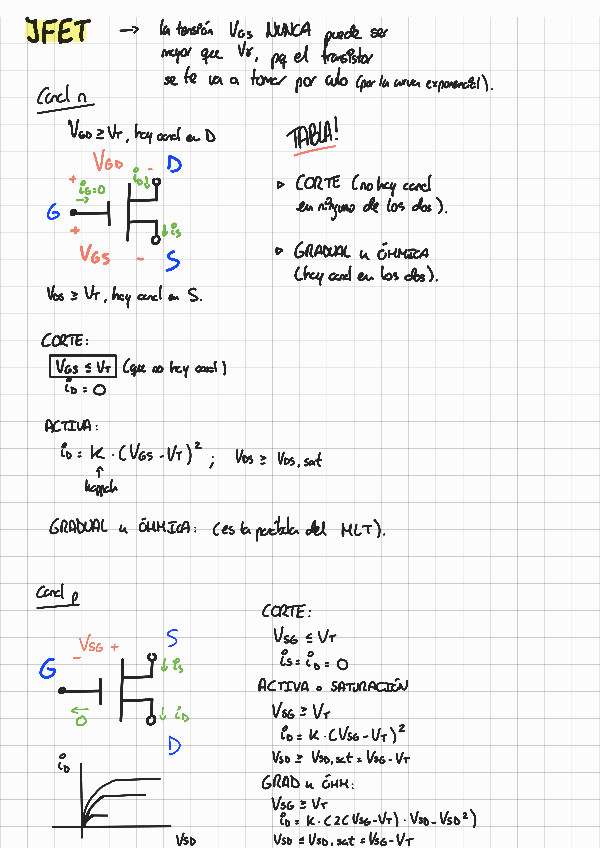 JFET → la tensión VGS NUNCA puede ser
mayor que Vγ, pq el transistor
se te va a tomar por culo (por la curva exponencial).
Canal n
VGD ≥ VT, hay canal en D
TABLA!
VGD
D
+
-
iG=0
iD↓
▷ CORTE (no hay canal
en ninguno de los dos).
G
+
↓is
VGS
-
S
▷ GRADUAL u ÓHMICA
(hay canal en los dos).
VGS ≥ VT, hay canal en S.
CORTE:
VGS ≤ VT (que no hay canal)
iD = 0
ACTIVA:
iD = K · (VGS - VT)²; VDS ≥ VDS,sat
↑
kappah
GRADUAL u ÓHMICA: (es la parábola del MLT).
Canal p
VSG +
-
S
G
↓is
0
↓iD
D
iD
VSD
CORTE:
VSG ≤ VT
is = iD = 0
ACTIVA o SATURACIÓN
VSG ≥ VT
iD = K · (VSG - VT)²
VSD ≥ VSD,sat = VSG - VT
GRAD u ÓHM:
VSG ≥ VT
iD = K · (2(VSG - VT) · VSD - VSD²)
VSD ≤ VSD,sat = VSG - VT